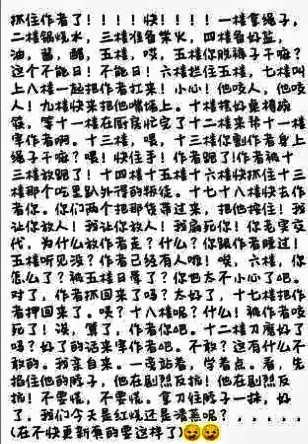 抓住作者了！！！！快！！！！一楼拿绳子，
二楼锅烧水，三楼准备柴火，四楼备好盐，
油，酱，醋，五楼，哎，五楼你脱裤子干嘛？
这个不能日！不能日！六楼拦住五楼，七楼叫
上八楼一起把作者扛来！小心！他咬人，他咬
人！九楼快来把他嘴堵上。十楼摆好桌椅碗
筷，等十一楼在厨房忙完了十二楼来帮十一楼
宰作者啊。十三楼，喂，十三楼你割作者身上
绳子干嘛？喂！快住手！作者跑了！作者被十
三楼放跑了！十四楼十五楼十六楼快抓住十三
楼那个吃里趴外得的叛徒。十七十八楼快去作
者你。你们两个把那货带过来，把他按住！我
让你放人！我让你放人！我扇死你！你老实交
代，为什么放作者走？什么？你跟作者睡过！
五楼听见没？作者已经有人啪！唉，六楼，你
怎么了？被五楼日晕了？你也太不小心了吧。
对了，作者抓回来了吗？太好了，十七楼把作
者押回来了。咦？十八楼呢？什么！被作者咬
死了！没，算了，作者你吧。十二楼刀磨好了
吗？好了的话来宰作者吧。不敢？这有什么不
敢的。我亲自来。一旁站着，学着点。看，先
掐住他的脖子，他在剧烈反抗！他在剧烈反
抗！不要慌，不要慌。拿刀往脖子一抹，好
了，我们今天是红烧还是清蒸呢？．．．．．
(在不快更新真的要这样了)